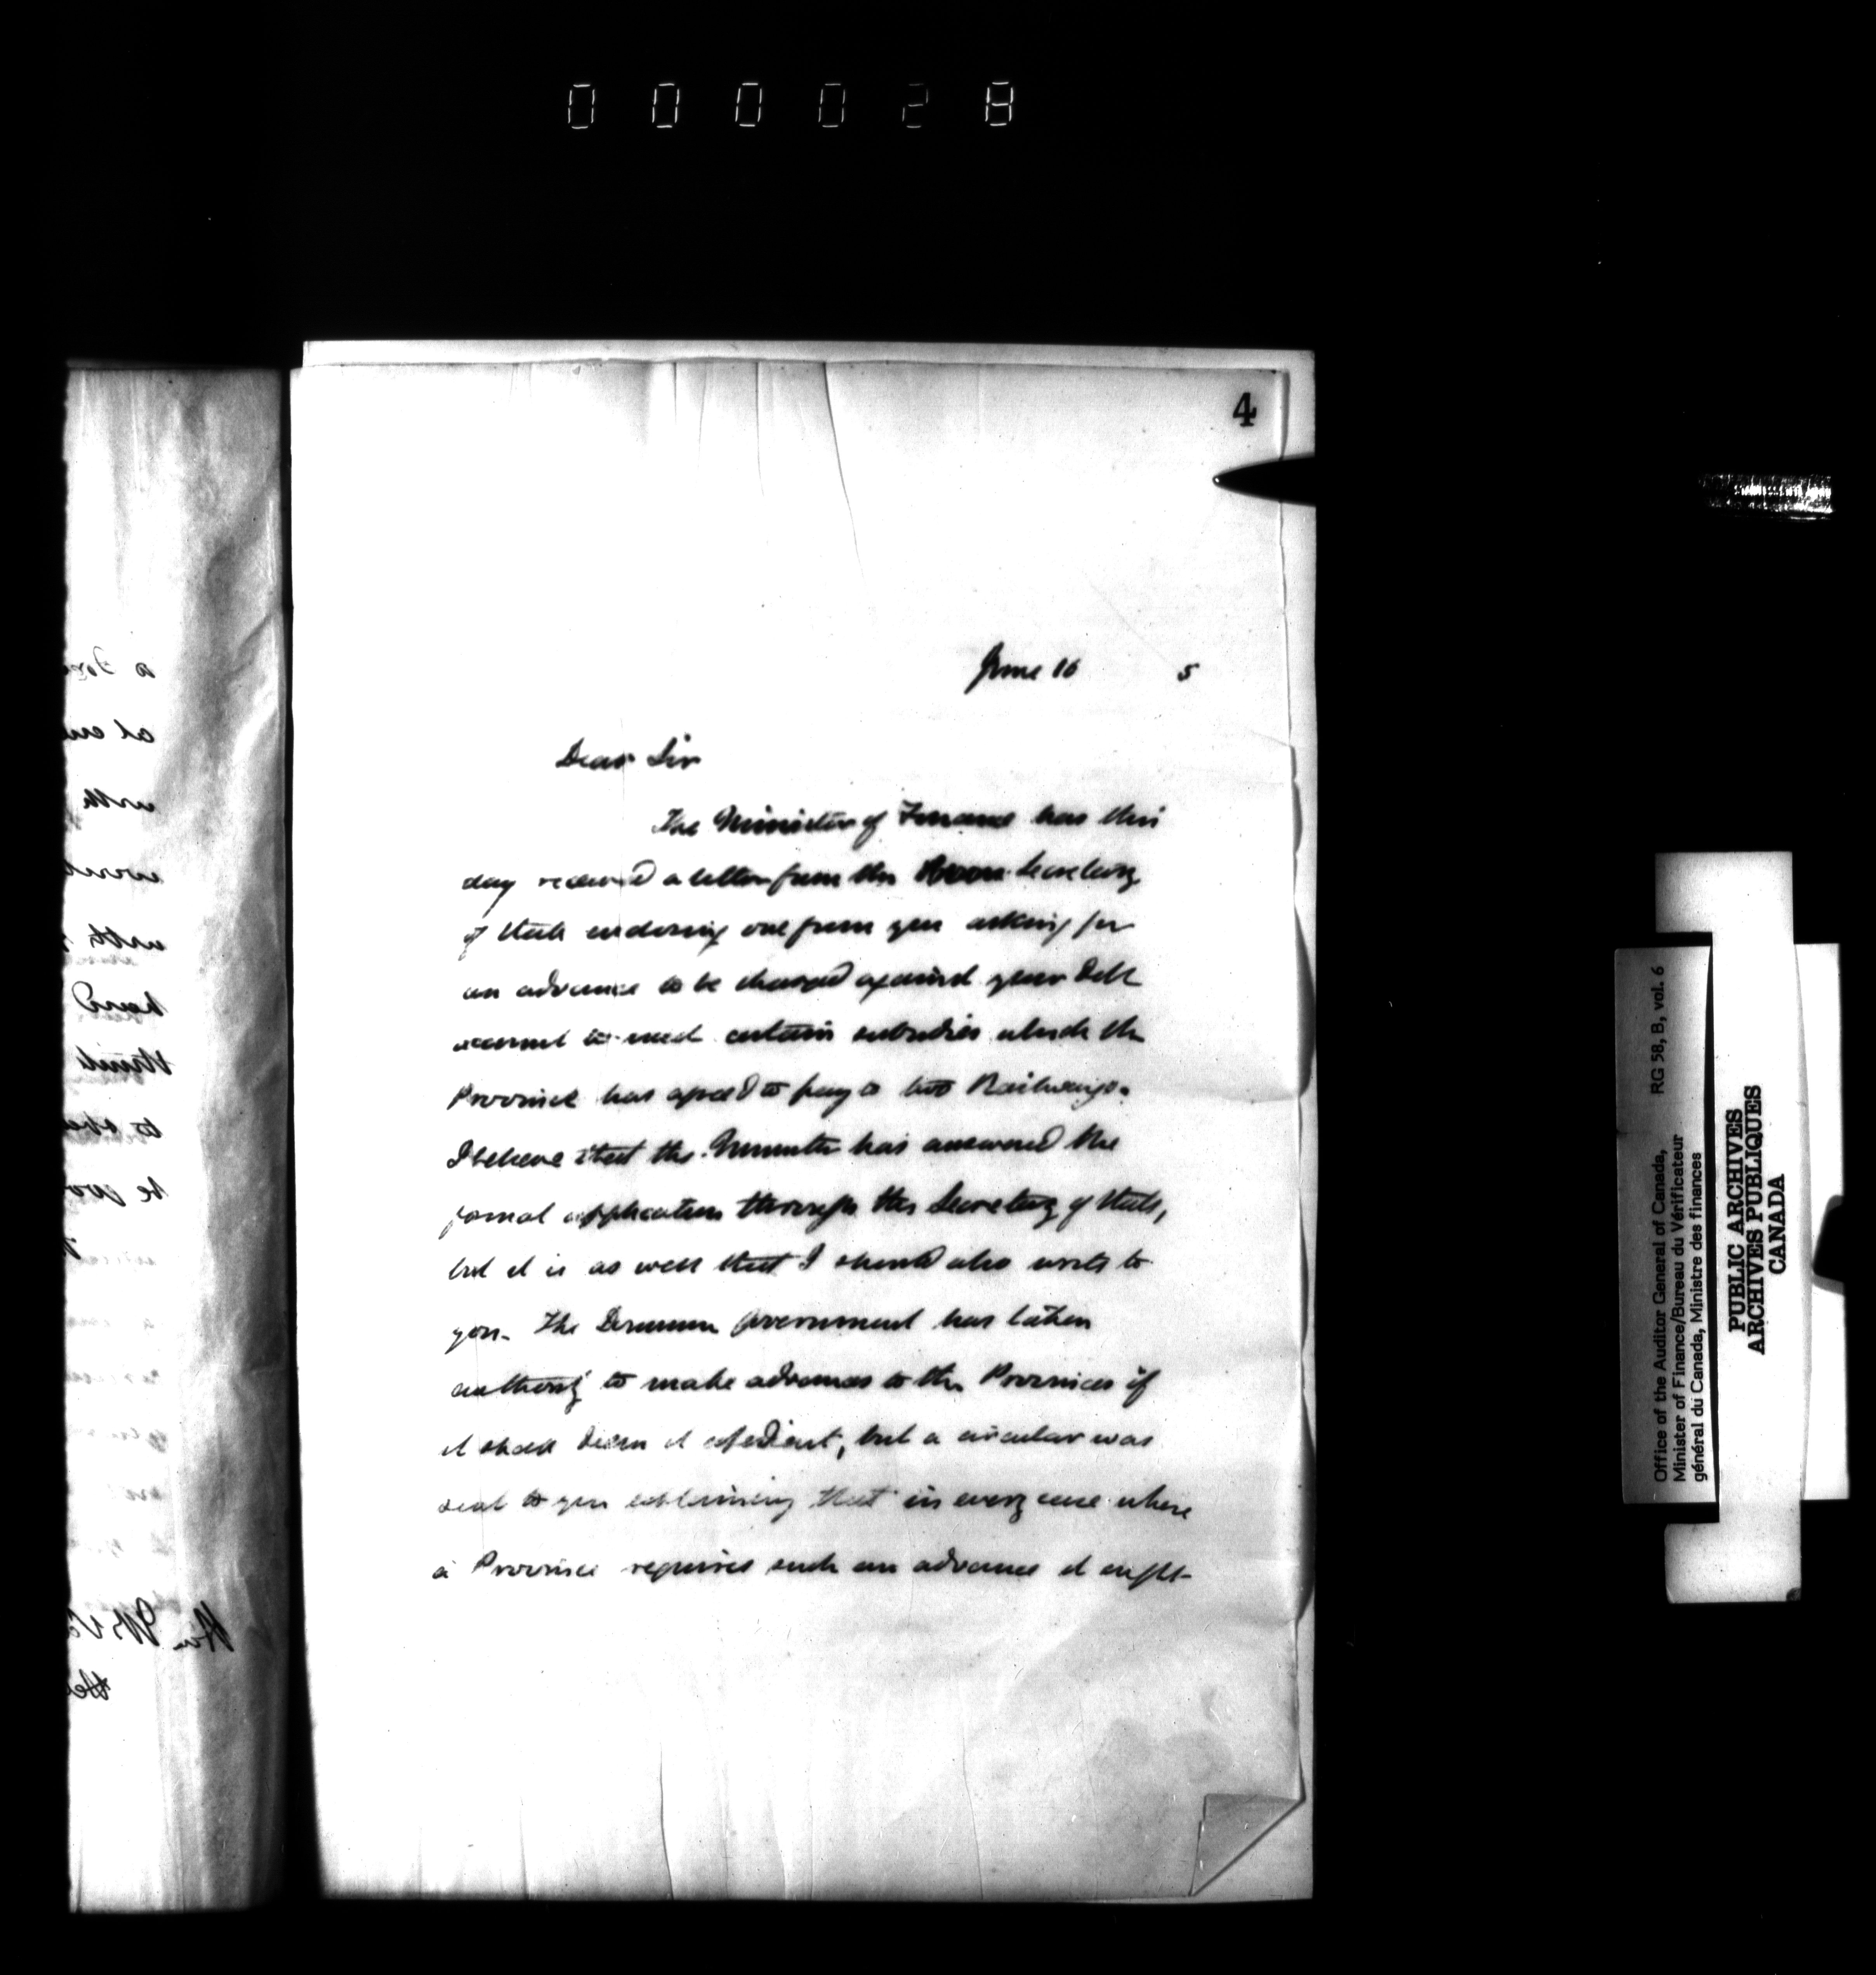 000028
4
June 16 5
Dear Sir
The Minister of Finance has this
day received a letter from the Secretary
of State enclosing one from you asking for
an advance to be charged against your debt
account to meet certain subsidies which the
Province has agreed to pay to two Railways.
I believe that the Minister has answered the
formal application through the Secretary of State,
but it is as well that I should also write to
you. The Dominion Government has taken
authority to make advances to the Provinces if
it shall deem it expedient, but a circular was
sent to you explaining that in every case where
a Province requires such an advance it ought
Office of the Auditor General of Canada, RG 58, B, vol. 6
Minister of Finance/Bureau du Vérificateur
général du Canada, Ministre des finances
PUBLIC ARCHIVES
ARCHIVES PUBLIQUES
CANADA